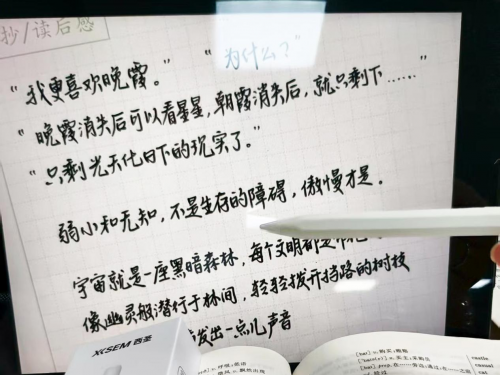 抄/读后感
“我更喜欢晚霞。” “为什么?”
“晚霞消失后可以看星星,朝霞消失后,就只剩下……”
“只剩光天化日下的现实了。”
弱小和无知,不是生存的障碍,傲慢才是。
宇宙就是一座黑暗森林,每个文明都是
像幽灵般潜行于林间,轻轻拨开挡路的树枝
发出一点儿声音
XISEM 西圣